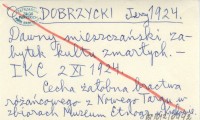 DOBRZYCKI Jerzy 1924.
Dawny mieszczański, za-
bytek kultu zmarłych. —
IKC 2 XI 1924
Cecha żałobna bractwa
różańcowego z Nowego Targu w
zbiorach Muzeum Etnogr.